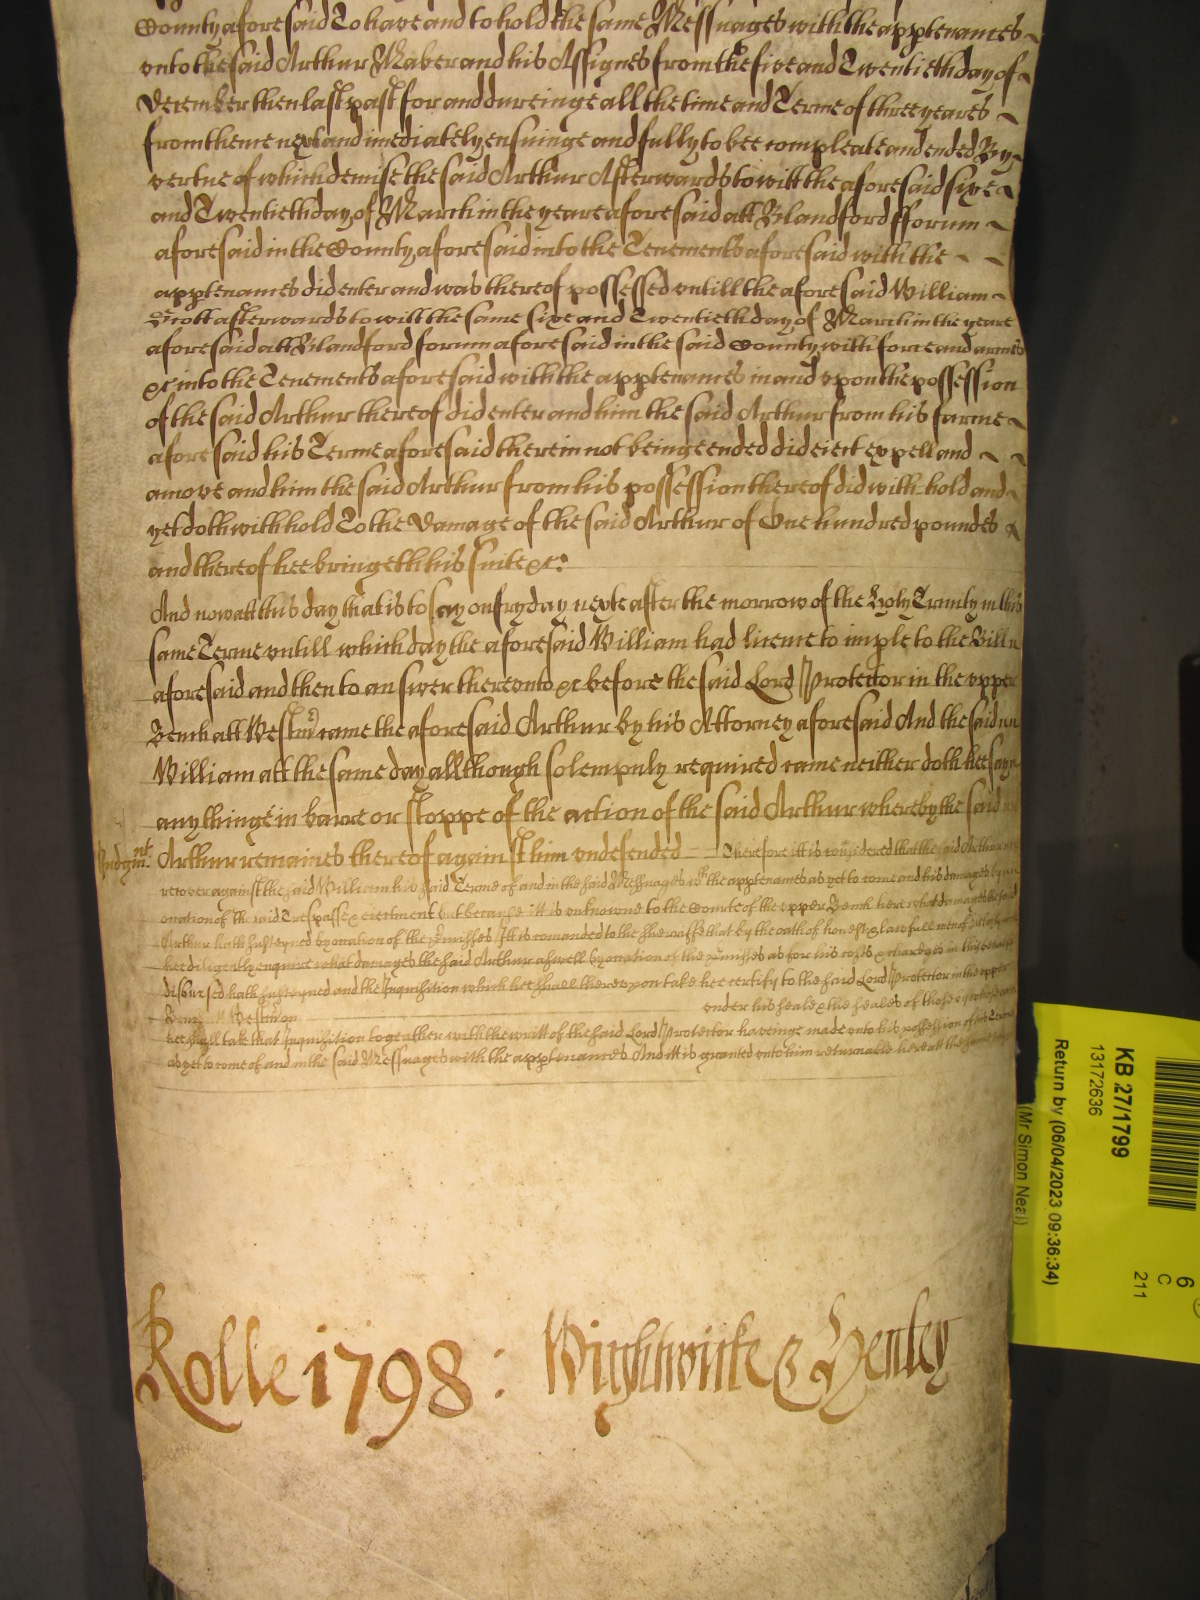 County aforesaid To have and to hold the same Messuages with the apptenances
unto the said Arthur Maber and his Assignes from the five and Twentieth day of
December then last past for and dureinge all the time and Terme of three yeares
from thence next and imediately ensuinge and fully to bee compleate and ended By
vertue of which demise the said Arthur Afterwards to witt the aforesaid sixe
and Twentieth day of March in the yeare aforesaid att Blandford fforum
aforesaid in the County aforesaid into the Tenements aforesaid with the
apptenances did enter and was thereof possessed untill the aforesaid William
Scott afterwards to witt the same sixe and Twentieth day of March in the yeare
aforesaid att Blandford forum aforesaid in the said County with force and armes
&c into the Tenements aforesaid with the apptenances in and upon the possession
of the said Arthur thereof did enter and him the said Arthur from his farme
aforesaid his Terme aforesaid therein not beinge ended did eiect expell and
amove and him the said Arthur from his possession thereof did with-hold and
yet doth withhold To the Damage of the said Arthur of One hundred poundes
and thereof hee bringeth his suite &c:
And now att this day that is to say on fryday next after the morrow of the Holy Trinity in this
same Terme untill which day the aforesaid William had licence to imple to the Bill
aforesaid and then to answer thereunto &c before the said Lord Protector in the upper
Bench att Westmr came the aforesaid Arthur by his Attorney aforesaid And the said
William att the same day allthough solempnly required came neither doth hee say
any thinge in barre or stoppe of the action of the said Arthur whereby the said
Judgmt. Arthur remaines thereof against him undefended Therefore itt is considered that the said Arthur
recover against the said William his said Terme of and in the said Messuages wth the apptenances as yet to come and his damages by
ocation of the said Trespasse & eiectment but because itt is unknowne to the Courte of the upper Bench here what damages the said
Arthur hath susteyned by ocation of the premisses Itt is comanded to the sheriffe that by the oath of honest & lawfull men of
hee diligently enquire what damages the said Arthur aswell by ocation of the premisses as for his costs & chardges in this behalfe
disbursed hath susteyned and the Inquisition which hee shall thereupon take hee certify to the said Lord Protector in the upper
Bench att Westmr on under his seale & the seales of those by whose oath
hee shall take that Inquisition together with the writt of the said Lord Protector haveinge made unto his possession of his Terme
as yet to come of and in the said Messuages with the apptenances And itt is granted unto him returnable here att the same
Rolle 1798: Wightwicke & Henley
KB 27/1799
13172636
Return by (06/04/2023 09:36:34)
(Mr Simon Neal)
6
C
211